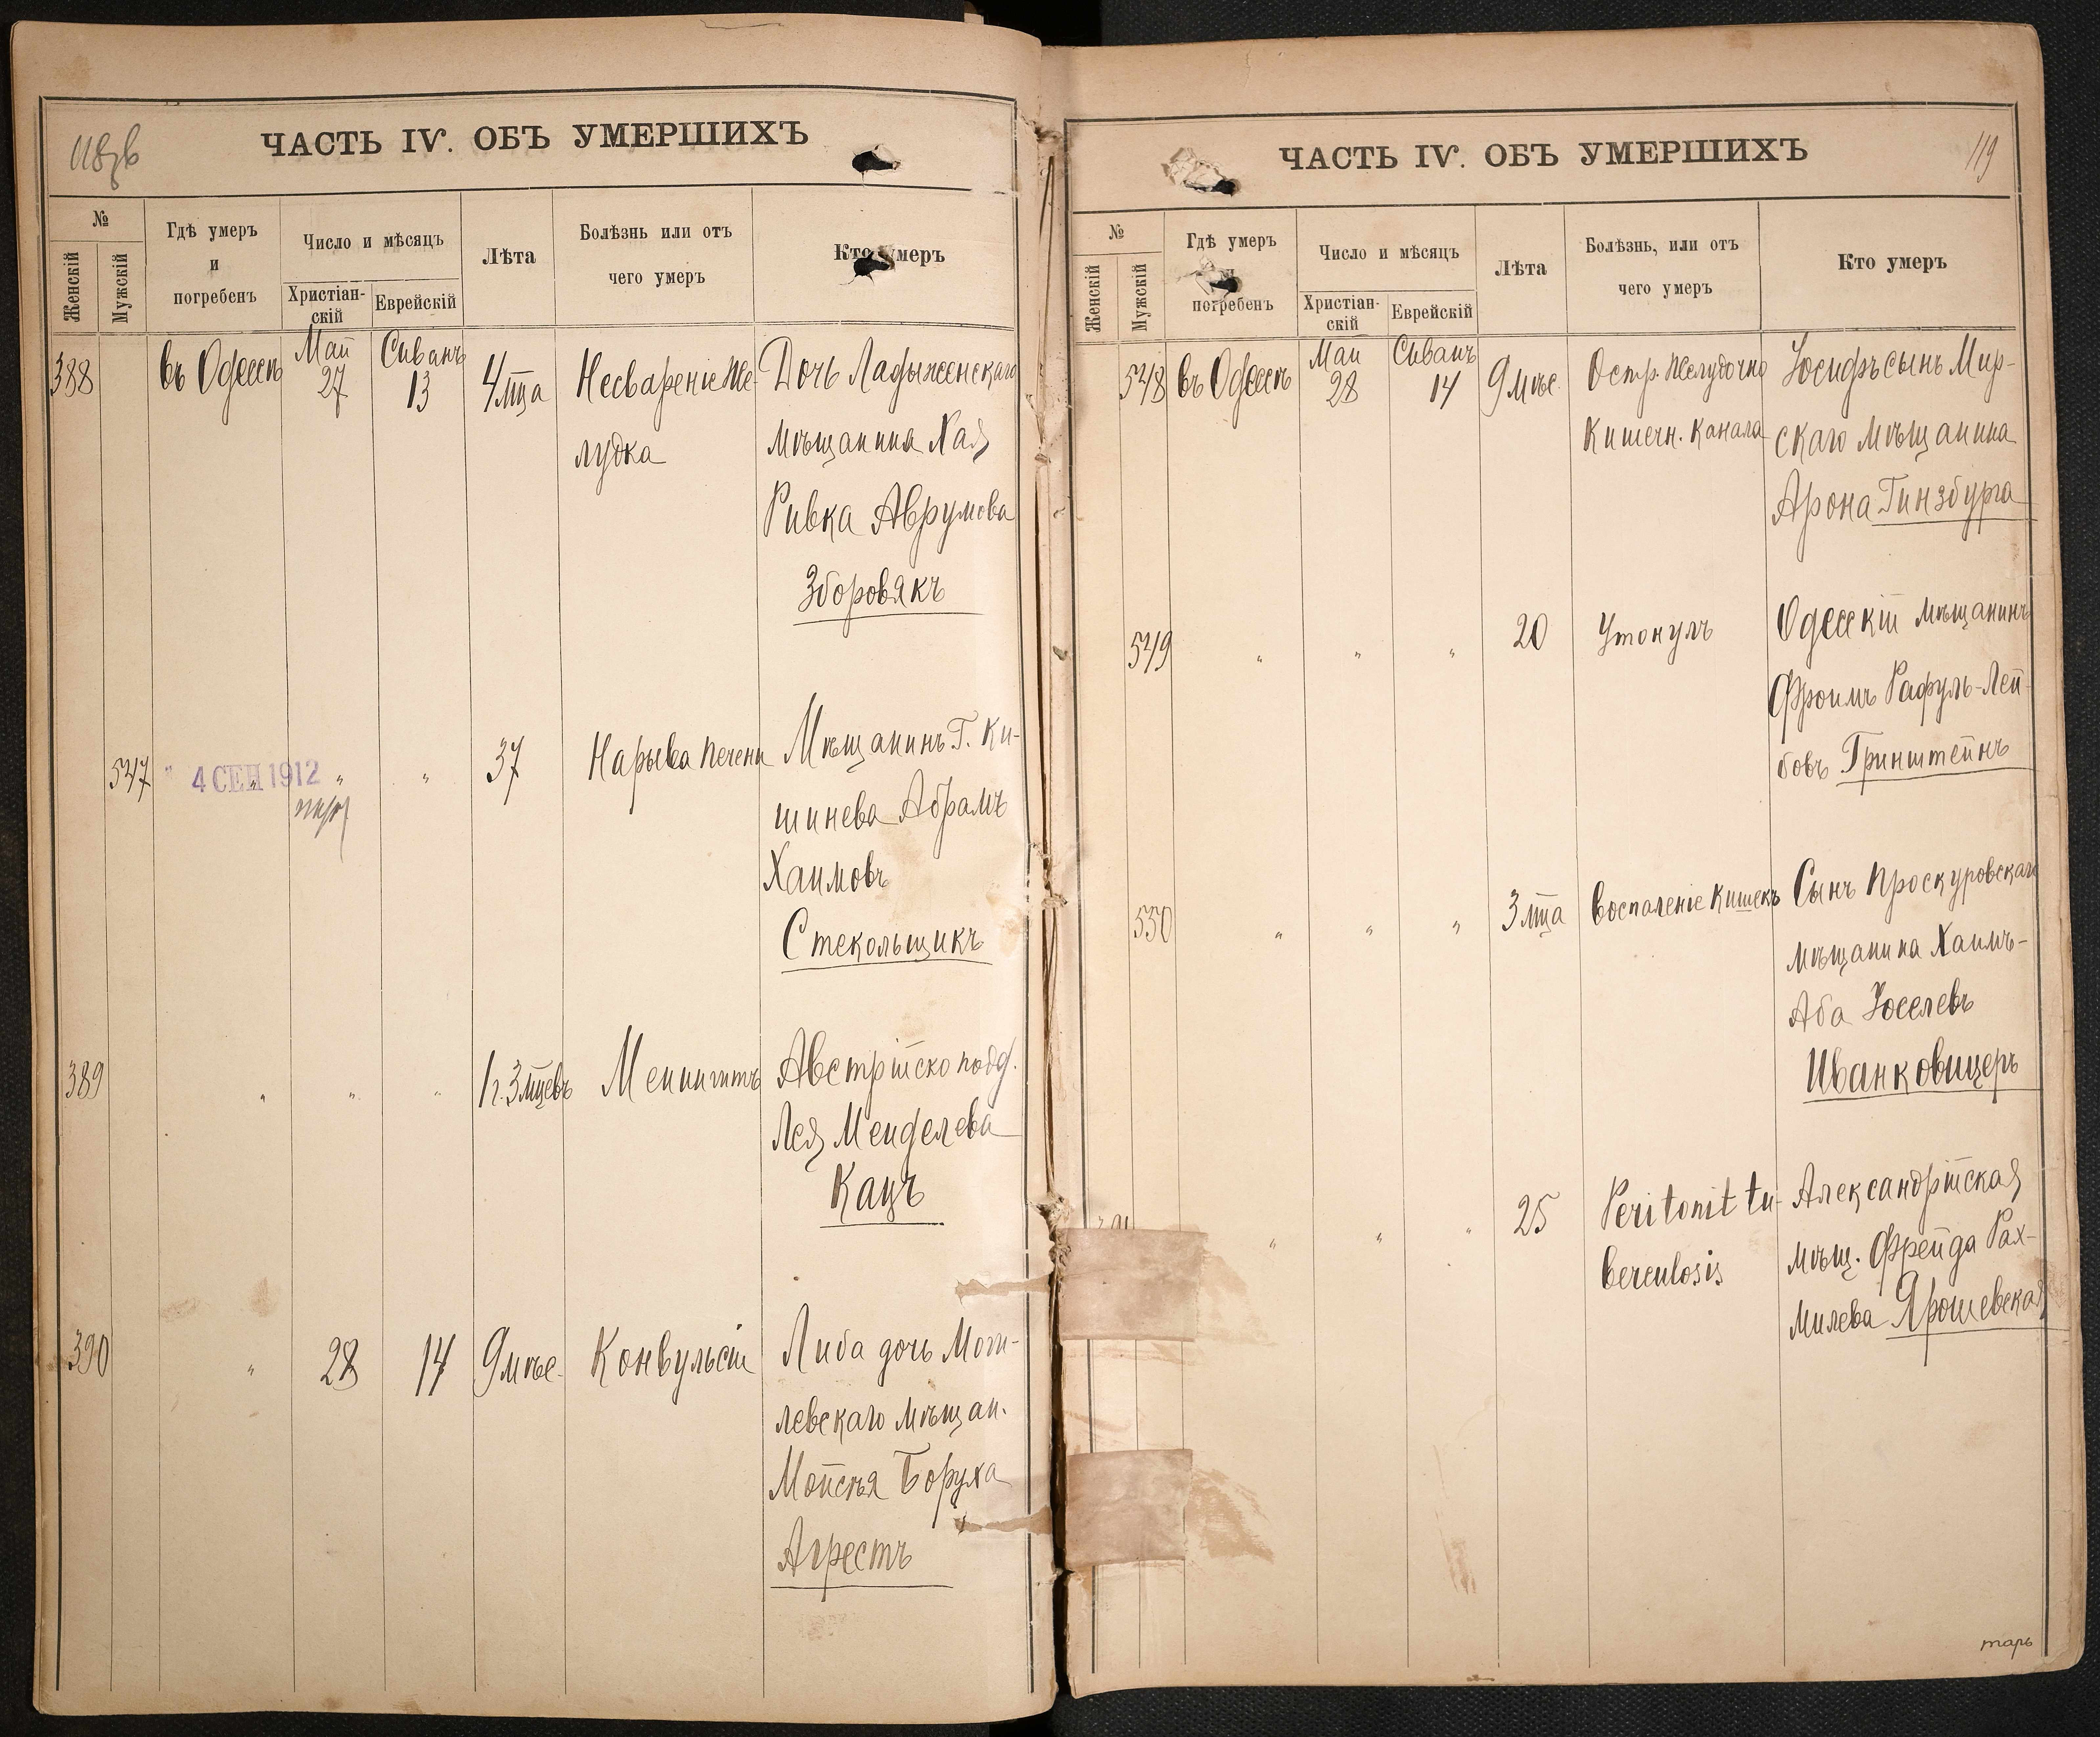 118об
ЧАСТЬ IV. ОБЪ УМЕРШИХЪ
№
Женскій
Мужскій
Гдѣ умеръ
и
погребенъ
Число и мѣсяцъ
Христіан-
скій
Еврейскій
Лѣта
Болѣзнь или отъ
чего умеръ
Кто умеръ
388 въ Одессѣ Май 27 Сиванъ 13 4 мца Несвареніе же- Дочь Ладыженскаго
лудка мѣщанина Хая
Ривка Аврумова
Зборовякъ
547 " 4 СЕН 1912 " " " 37 Нарыва печени Мѣщанинъ г. Ки-
шинева Абрамъ
Хаимовъ
Стекольщикъ
389 " " " 1 г. 3 мцевъ Менингитъ Австрійско подд.
Лея Менделева
Кацъ
390 " 28 14 9 мѣс. Конвульсіи Либа дочь Моги-
левскаго мѣщан.
Мойсѣя Боруха
Агрестъ
119
ЧАСТЬ IV. ОБЪ УМЕРШИХЪ
№
Женскій
Мужскій
Гдѣ умеръ
и
погребенъ
Число и мѣсяцъ
Христіан-
скій
Еврейскій
Лѣта
Болѣзнь, или отъ
чего умеръ
Кто умеръ
548 въ Одессѣ Май 28 Сиванъ 14 9 мѣс. Остр. желудочно Іосифъ сынъ Мир-
кишечн. канала скаго мѣщанина
Арона Гинзбурга
549 " " " 20 Утонулъ Одесскій мѣщанинъ
Фроимъ Рафуль-Лей-
бовъ Гринштейнъ
550 " " " 3 мца Воспаленіе кишекъ Сынъ Проскуровскаго
мѣщанина Хаимъ-
Аба Іоселевъ
Иванковицеръ
" " " 25 Peritonit tu- Александрійская
berculosis мѣщ. Фрейда Рах-
милева Ярошевская
тарь